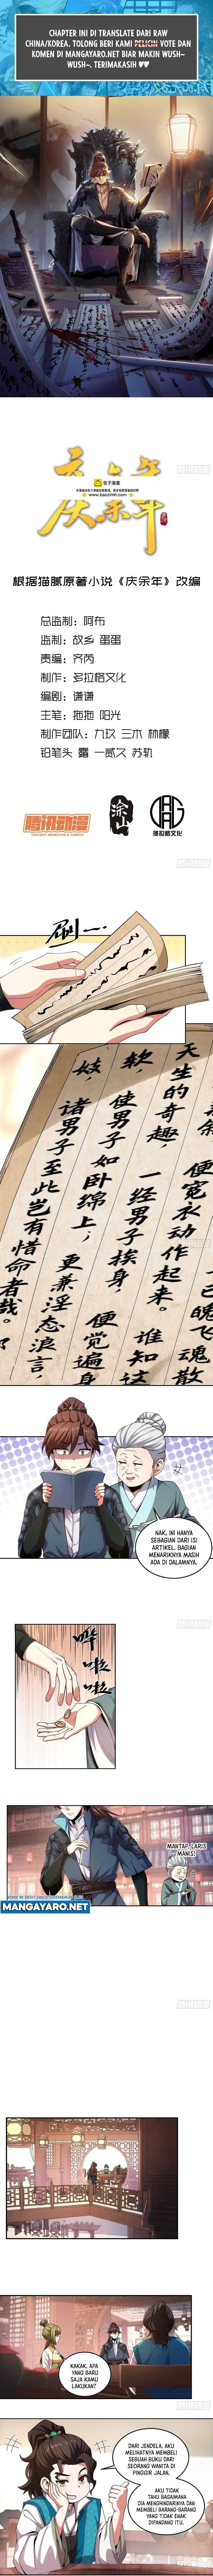 CHAPTER INI DI TRANSLATE DARI RAW
CHINA/KOREA. TOLONG BERI KAMI VOTE DAN
KOMEN DI MANGAYARO.NET BIAR MAKIN WUSH~
WUSH~. TERIMAKASIH ♥♥
庆余年
包子漫畫
www.baozimh.com
根据猫腻原著小说《庆余年》改编
总监制：阿布
监制：故乡 蛋蛋
责编：齐芮
制作：多拉格文化
编剧：谦谦
主笔：拖拖 阳光
制作团队：九玖 三木 林檬
铅笔头 露 一贰又 苏轨
腾讯动漫
TENCENT ANIMATION & COMICS
多拉格文化
刷一
天生的奇趣，
便宽衣动作起来。
一经男子挨身，
谁知这
软
使男子如卧绵上，
便觉遍身
妓，
诸男子至此岂有惜命者哉。
更兼淫态浪言，
魄飞魂散
NAK, INI HANYA
SEBAGIAN DARI ISI
ARTIKEL, BAGIAN
MENARIKNYA MASIH
ADA DI DALAMNYA.
哗啦啦
MANTAP, LARIS
MANIS!
MANGAYARO.NET
KAKAK, APA
YANG BARU
SAJA KAMU
LAKUKAN?
DARI JENDELA, AKU
MELIHATNYA MEMBELI
SEBUAH BUKU DARI
SEORANG WANITA DI
PINGGIR JALAN.
AKU TIDAK
TAHU BAGAIMANA
DIA MENGHINDARINYA DAN
MEMBELI BARANG-BARANG
YANG TIDAK ENAK
DIPANDANG ITU.